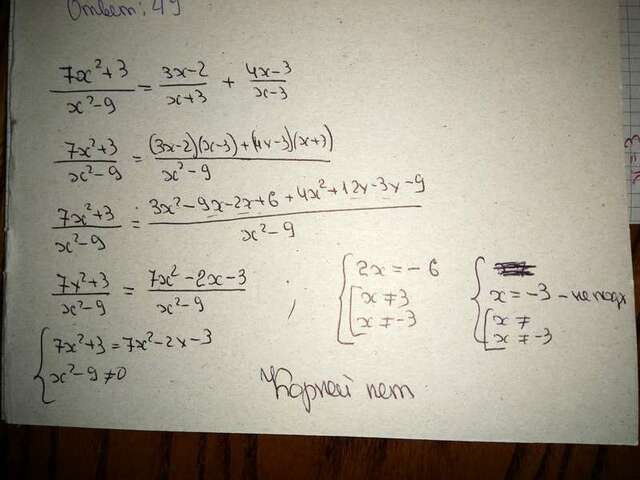 Ответ: 4
(7x²+3)/(x²-9) = (3x-2)/(x+3) + (4x-3)/(x-3)
(7x²+3)/(x²-9) = ((3x-2)(x-3)+(4x-3)(x+3))/(x²-9)
(7x²+3)/(x²-9) = (3x²-9x-2x+6+4x²+12x-3x-9)/(x²-9)
(7x²+3)/(x²-9) = (7x²-2x-3)/(x²-9)
{ 7x²+3=7x²-2x-3
x²-9≠0
{ 2x=-6
[ x≠3
x≠-3
{ x=-3 -
[ x≠
x≠-3
Корней нет